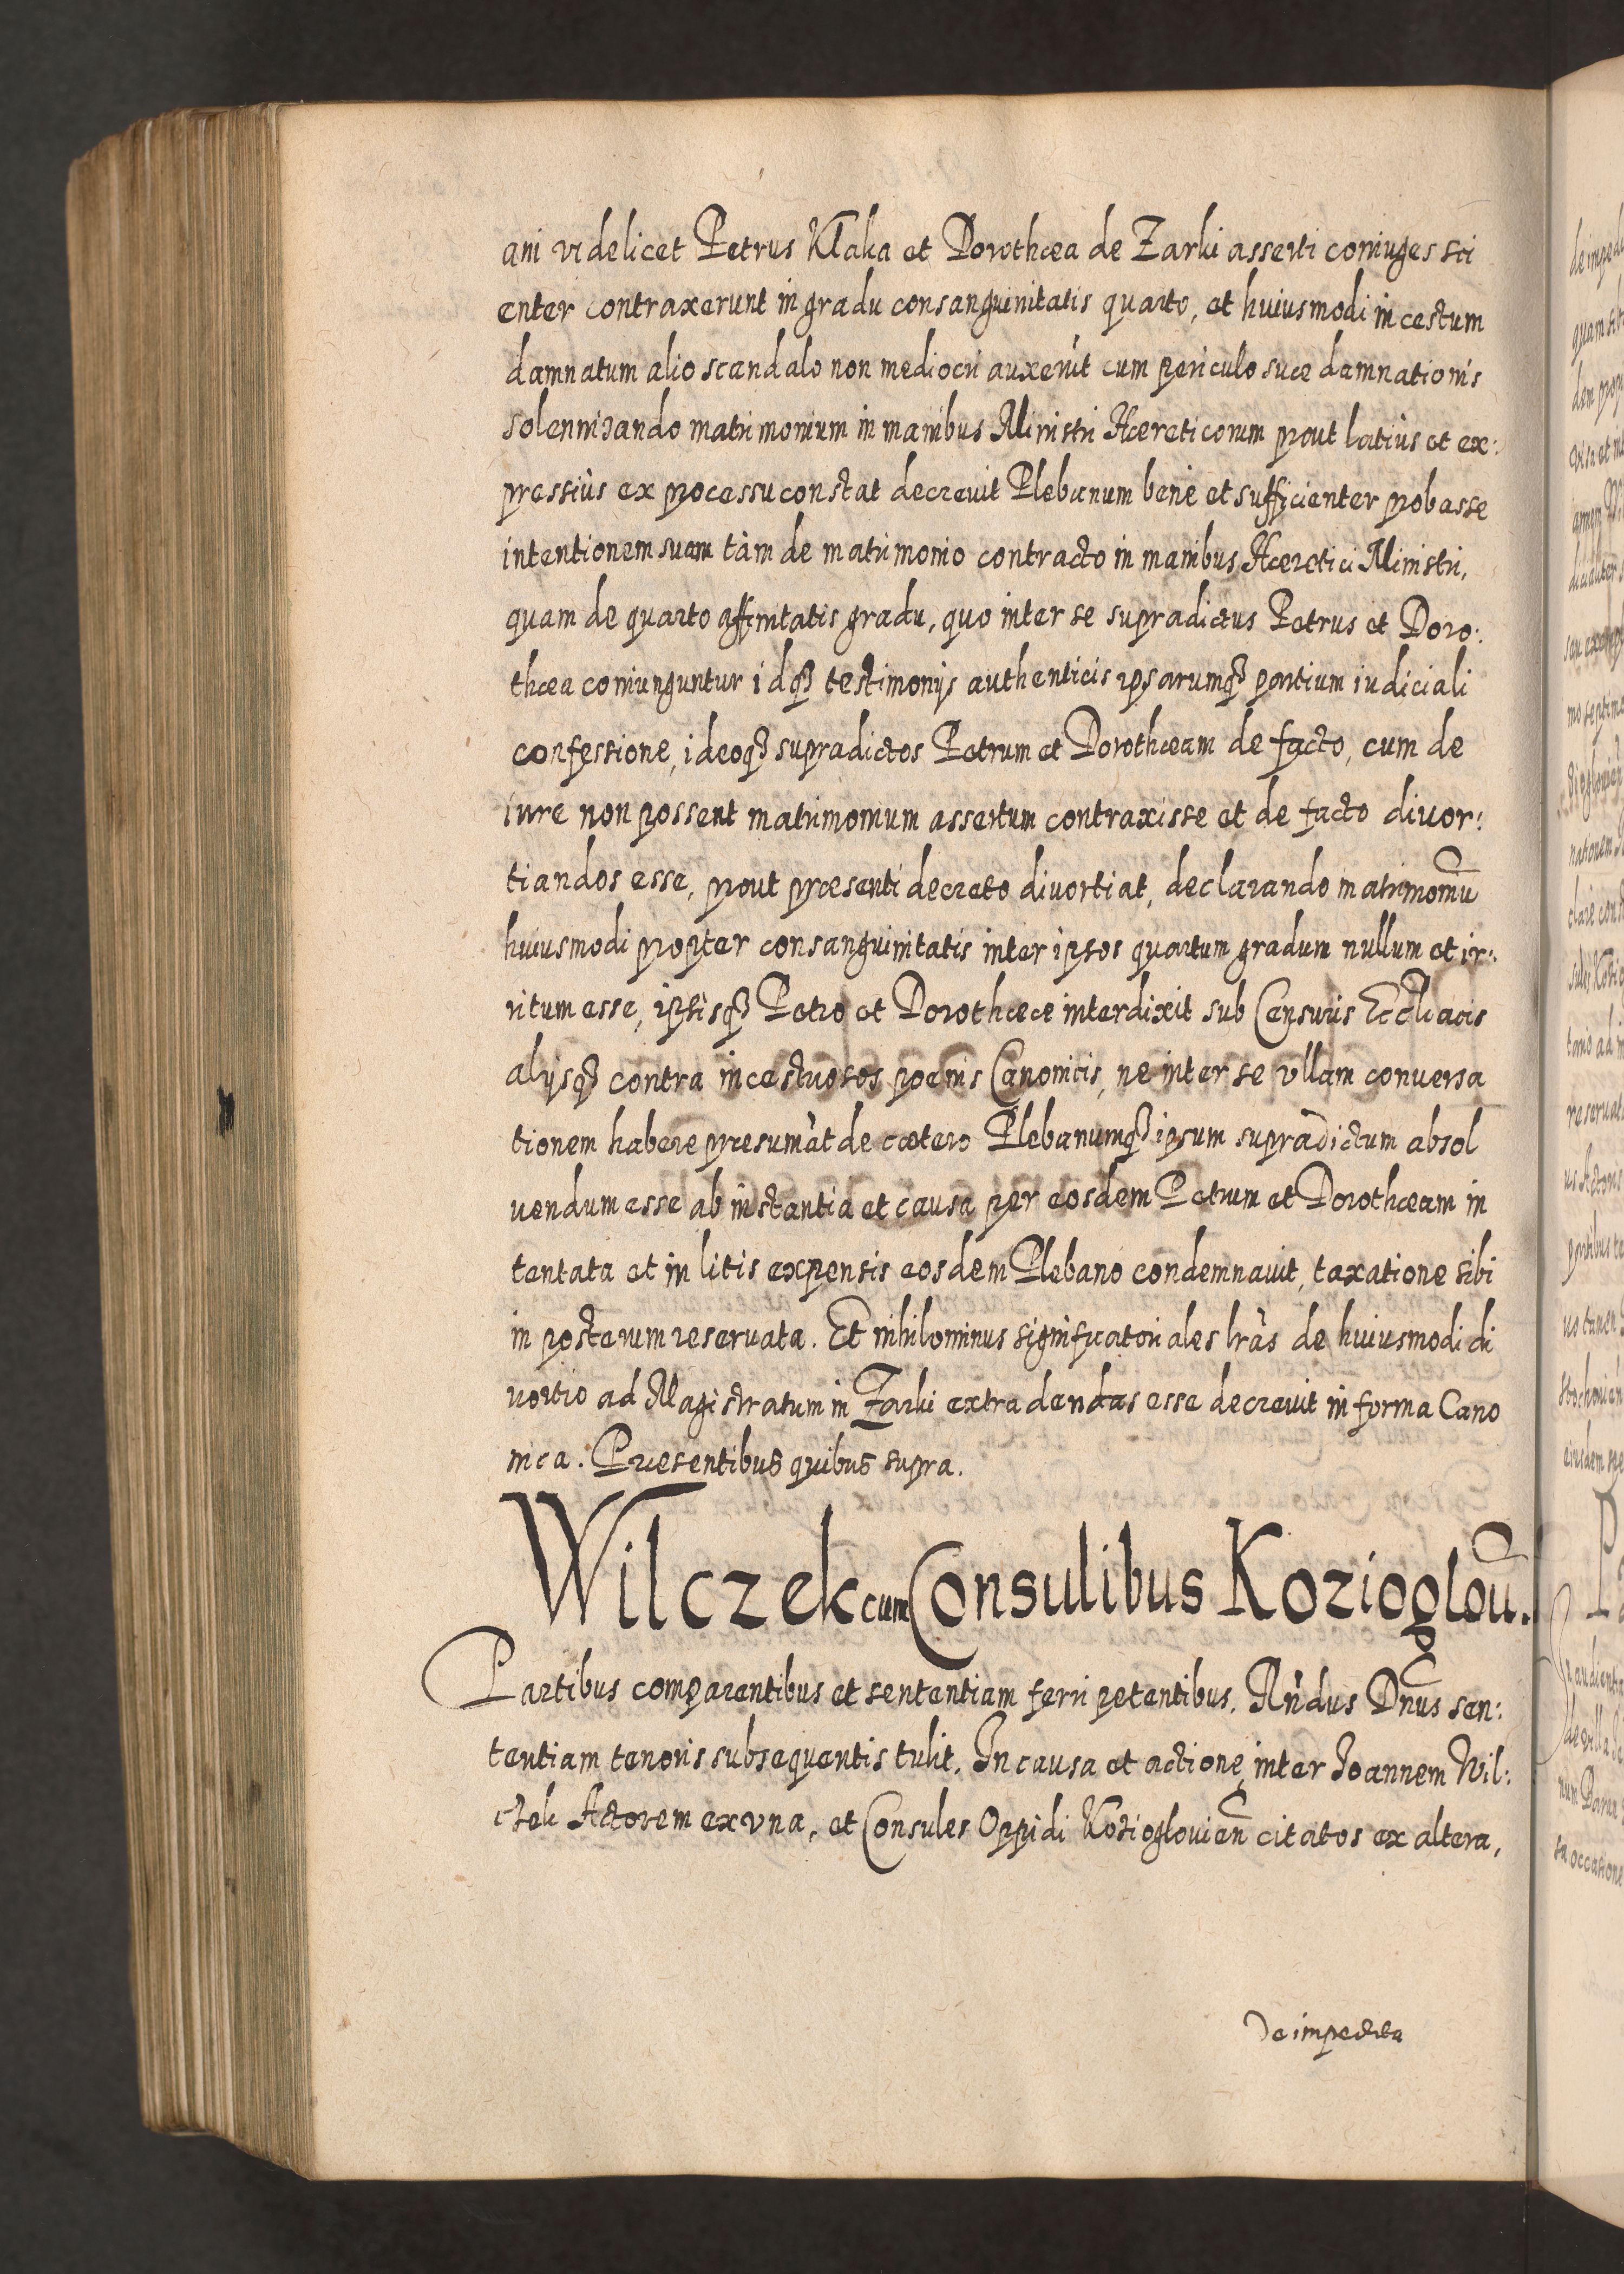 ani videlicet Petrus Klaka et Dorothæa de Zarki asserti coniuges sci
enter contraxerunt in gradu consanguinitatis quarto, et huiusmodi incestum
damnatum alio scandalo non mediocri auxerūt cum periculo suæ damnationis
solennizando matrimonium in manibus Ministri Hæreticorum prout latiùs et ex:
pressiùs ex processu constat decrevit Plebanum benè et sufficienter probasse
intentionem suam tàm de matrimonio contracto in manibus Hæretici Ministri,
quam de quarto affinitatis gradu, quo inter se supradictus Petrus et Doro:
thæa coniunguntur idq3 testimonijs authenticis ipsarumq3 partium iudiciali
confessione, ideoq3 supradictos Petrum et Dorothæam de facto, cum de
iure non possent matrimonium assertum contraxisse et de facto divor:
tiandos esse, prout præsenti decreto divortiat, declarando matrimoniū
huiusmodi propter consanguinitatis inter ipsos quartum gradum nullum et ir:
ritum esse, ipsisq3 Petro et Dorothæe interdixit sub Censuris Eccl̄iacis
alijsq3 contra incestuosos poenis Canonicis, ne inter se vllam conuersa
tionem habere præsumāt de cætero Plebanumq3 ipsum supradictum absol
uendum esse ab instantia et causa per eosdem Petrum et Dorothæam in
tentata et in litis expensis eosdem Plebano condemnauit, taxatione sibi
in posterum reseruata. Et nihilominus significatoriales lr̄as de huiusmodi di
uortio ad Magistratum in Zarki extradendas esse decreuit in forma Cano
nica. Præsentibus quibus supra.
Wilczek cum Consulibus Kozioglou̅.
Partibus comparentibus et sententiam ferri petentibus. Rn̄dus Dn̄us sen:
tentiam tenoris subsequentis tulit. In causa et actione inter Joannem Wil:
czek Actorem ex vna, et Consules Oppidi Kozioglouien̄ citatos ex altera,
De impedita